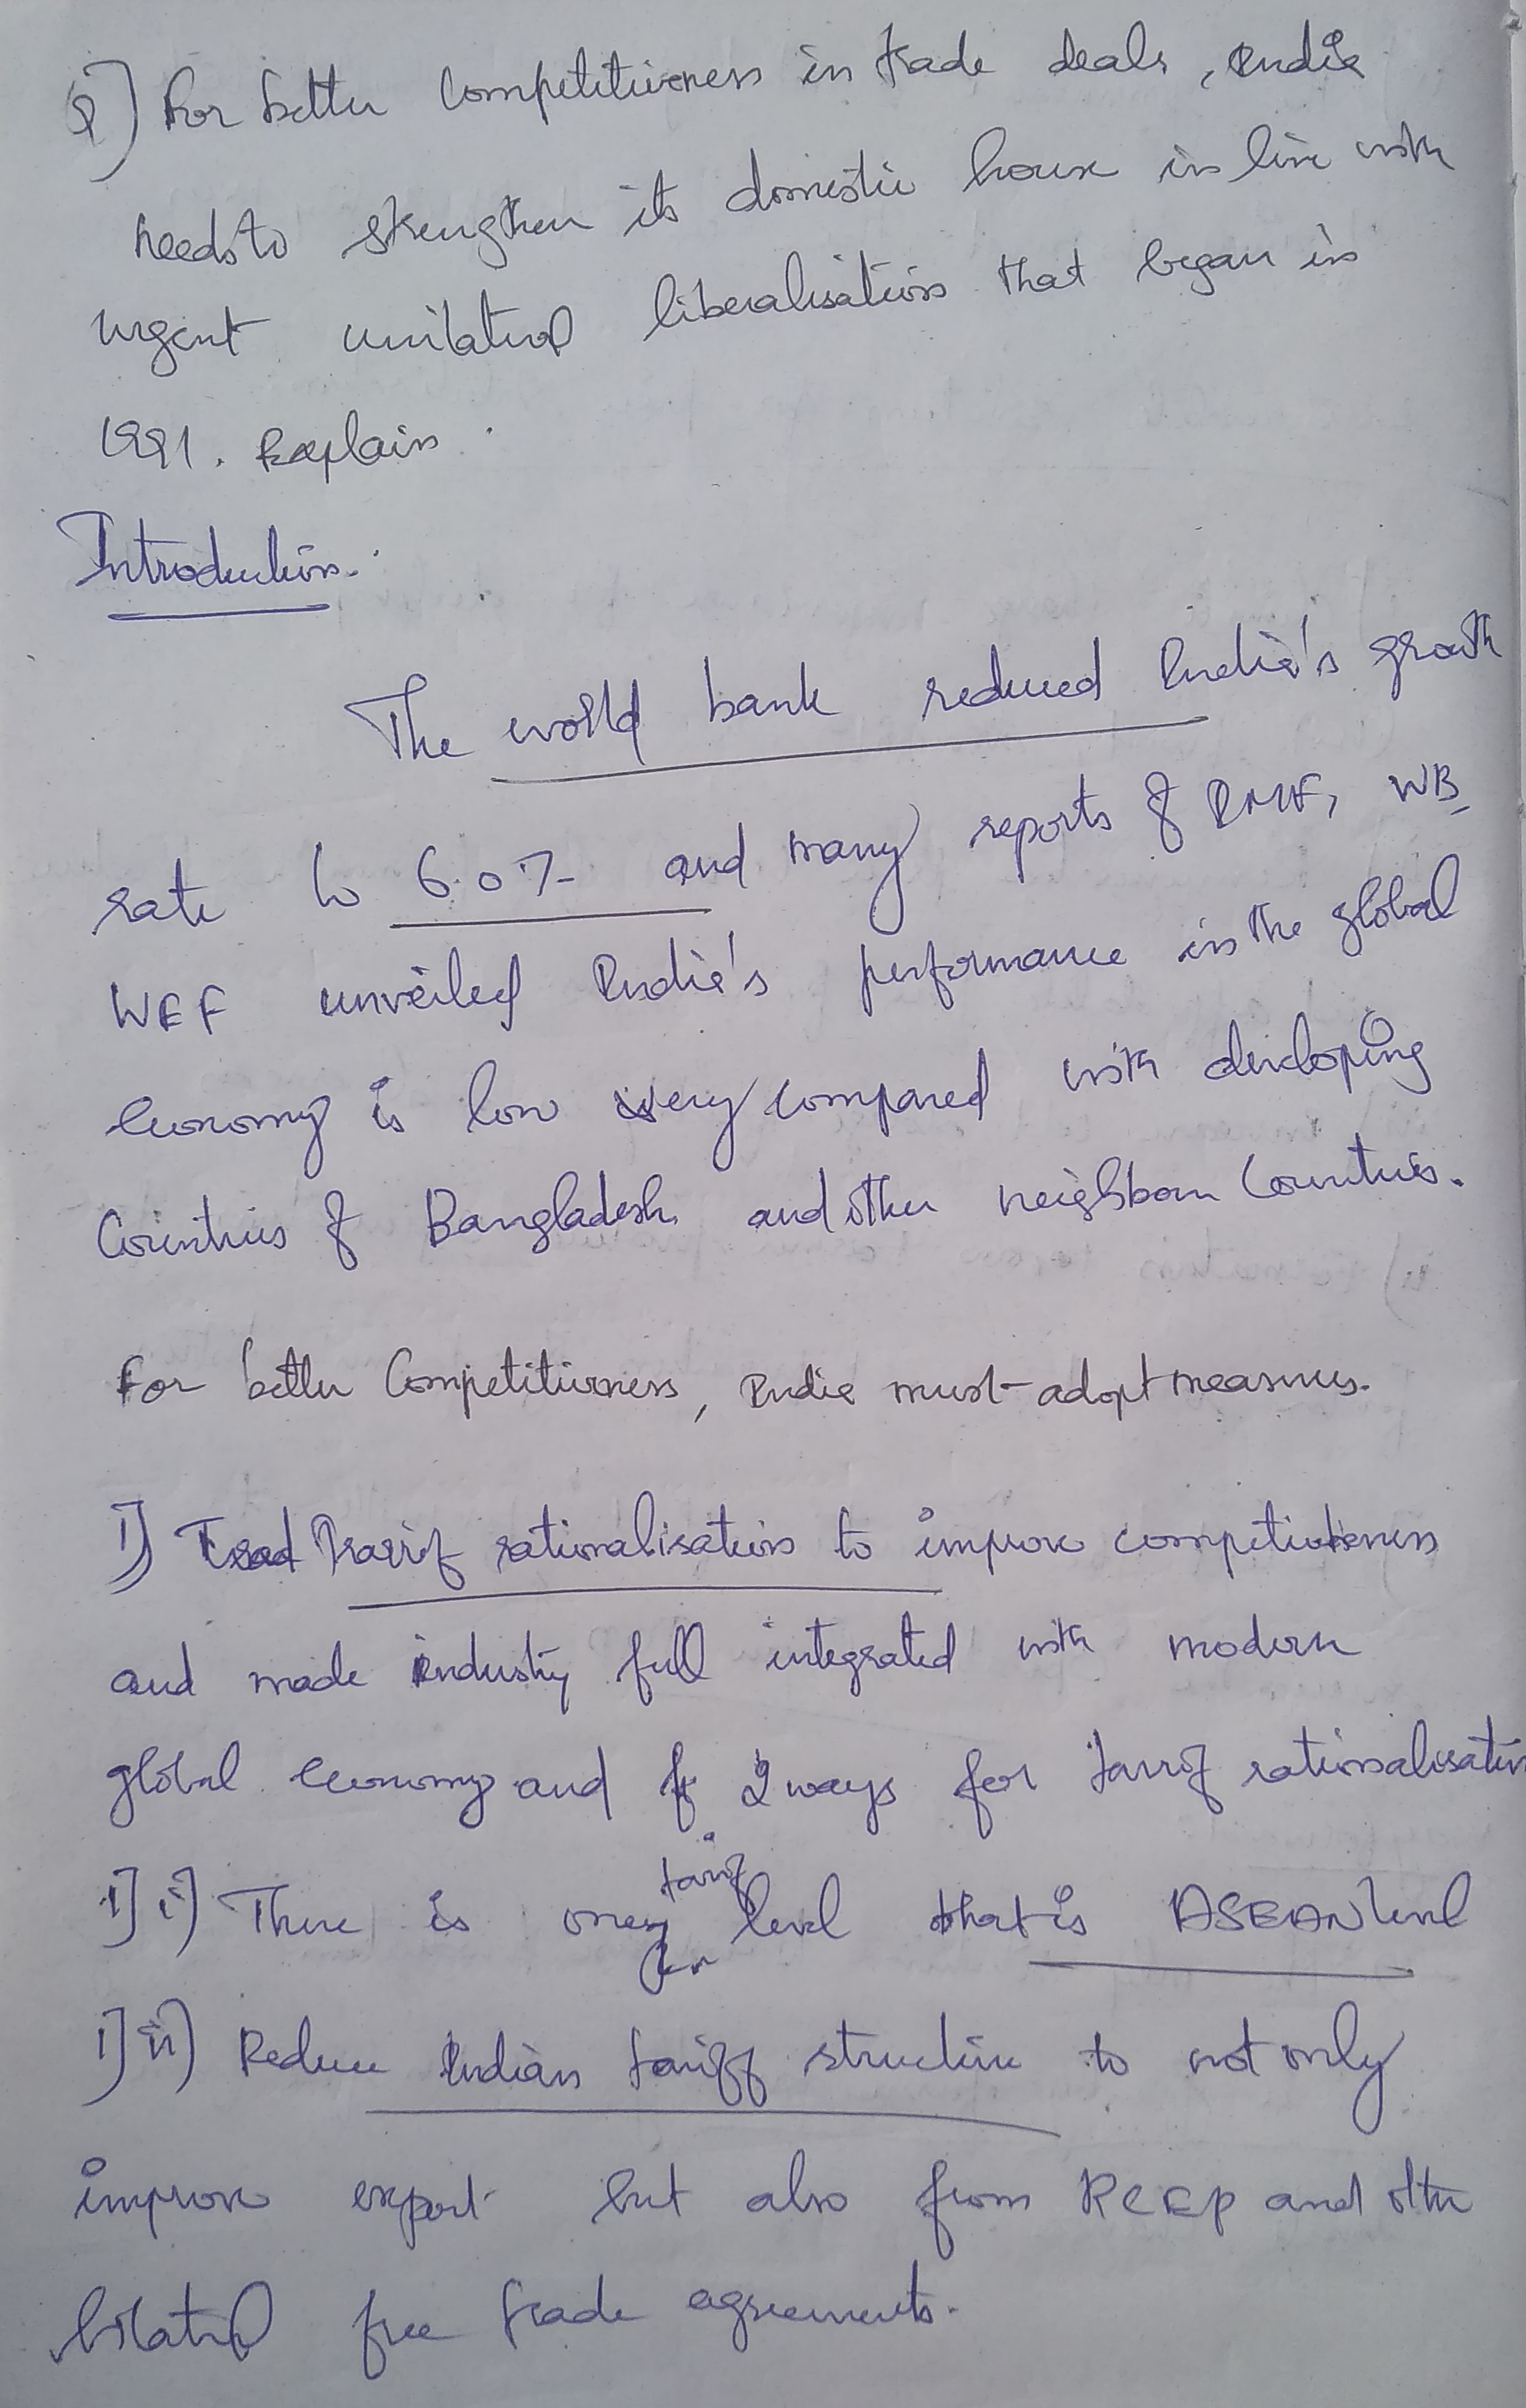 Q] For better Competitiveness in trade deals, India
needs to strengthen its domestic house in line with
urgent unilateral liberalisation that began in
1991. Explain.
Introduction:
The world bank reduced India's growth
rate to 6.0% and many reports of IMF, WB
WEF unveiled India's performance in the global
economy is low very compared with developing
Countries of Bangladesh and other neighbour Countries.
For better Competitiveness, India must adopt measures.
1) Tarrif rationalisation to improve competitiveness
and made industry full integrated with modern
global economy and 2 ways for tarrif rationalisation
1] i) There is one tariff level that is ASEAN level
1] ii) Reduce Indian tariff structure to not only
improve export but also from RCEP and other
bilateral free trade agreements.